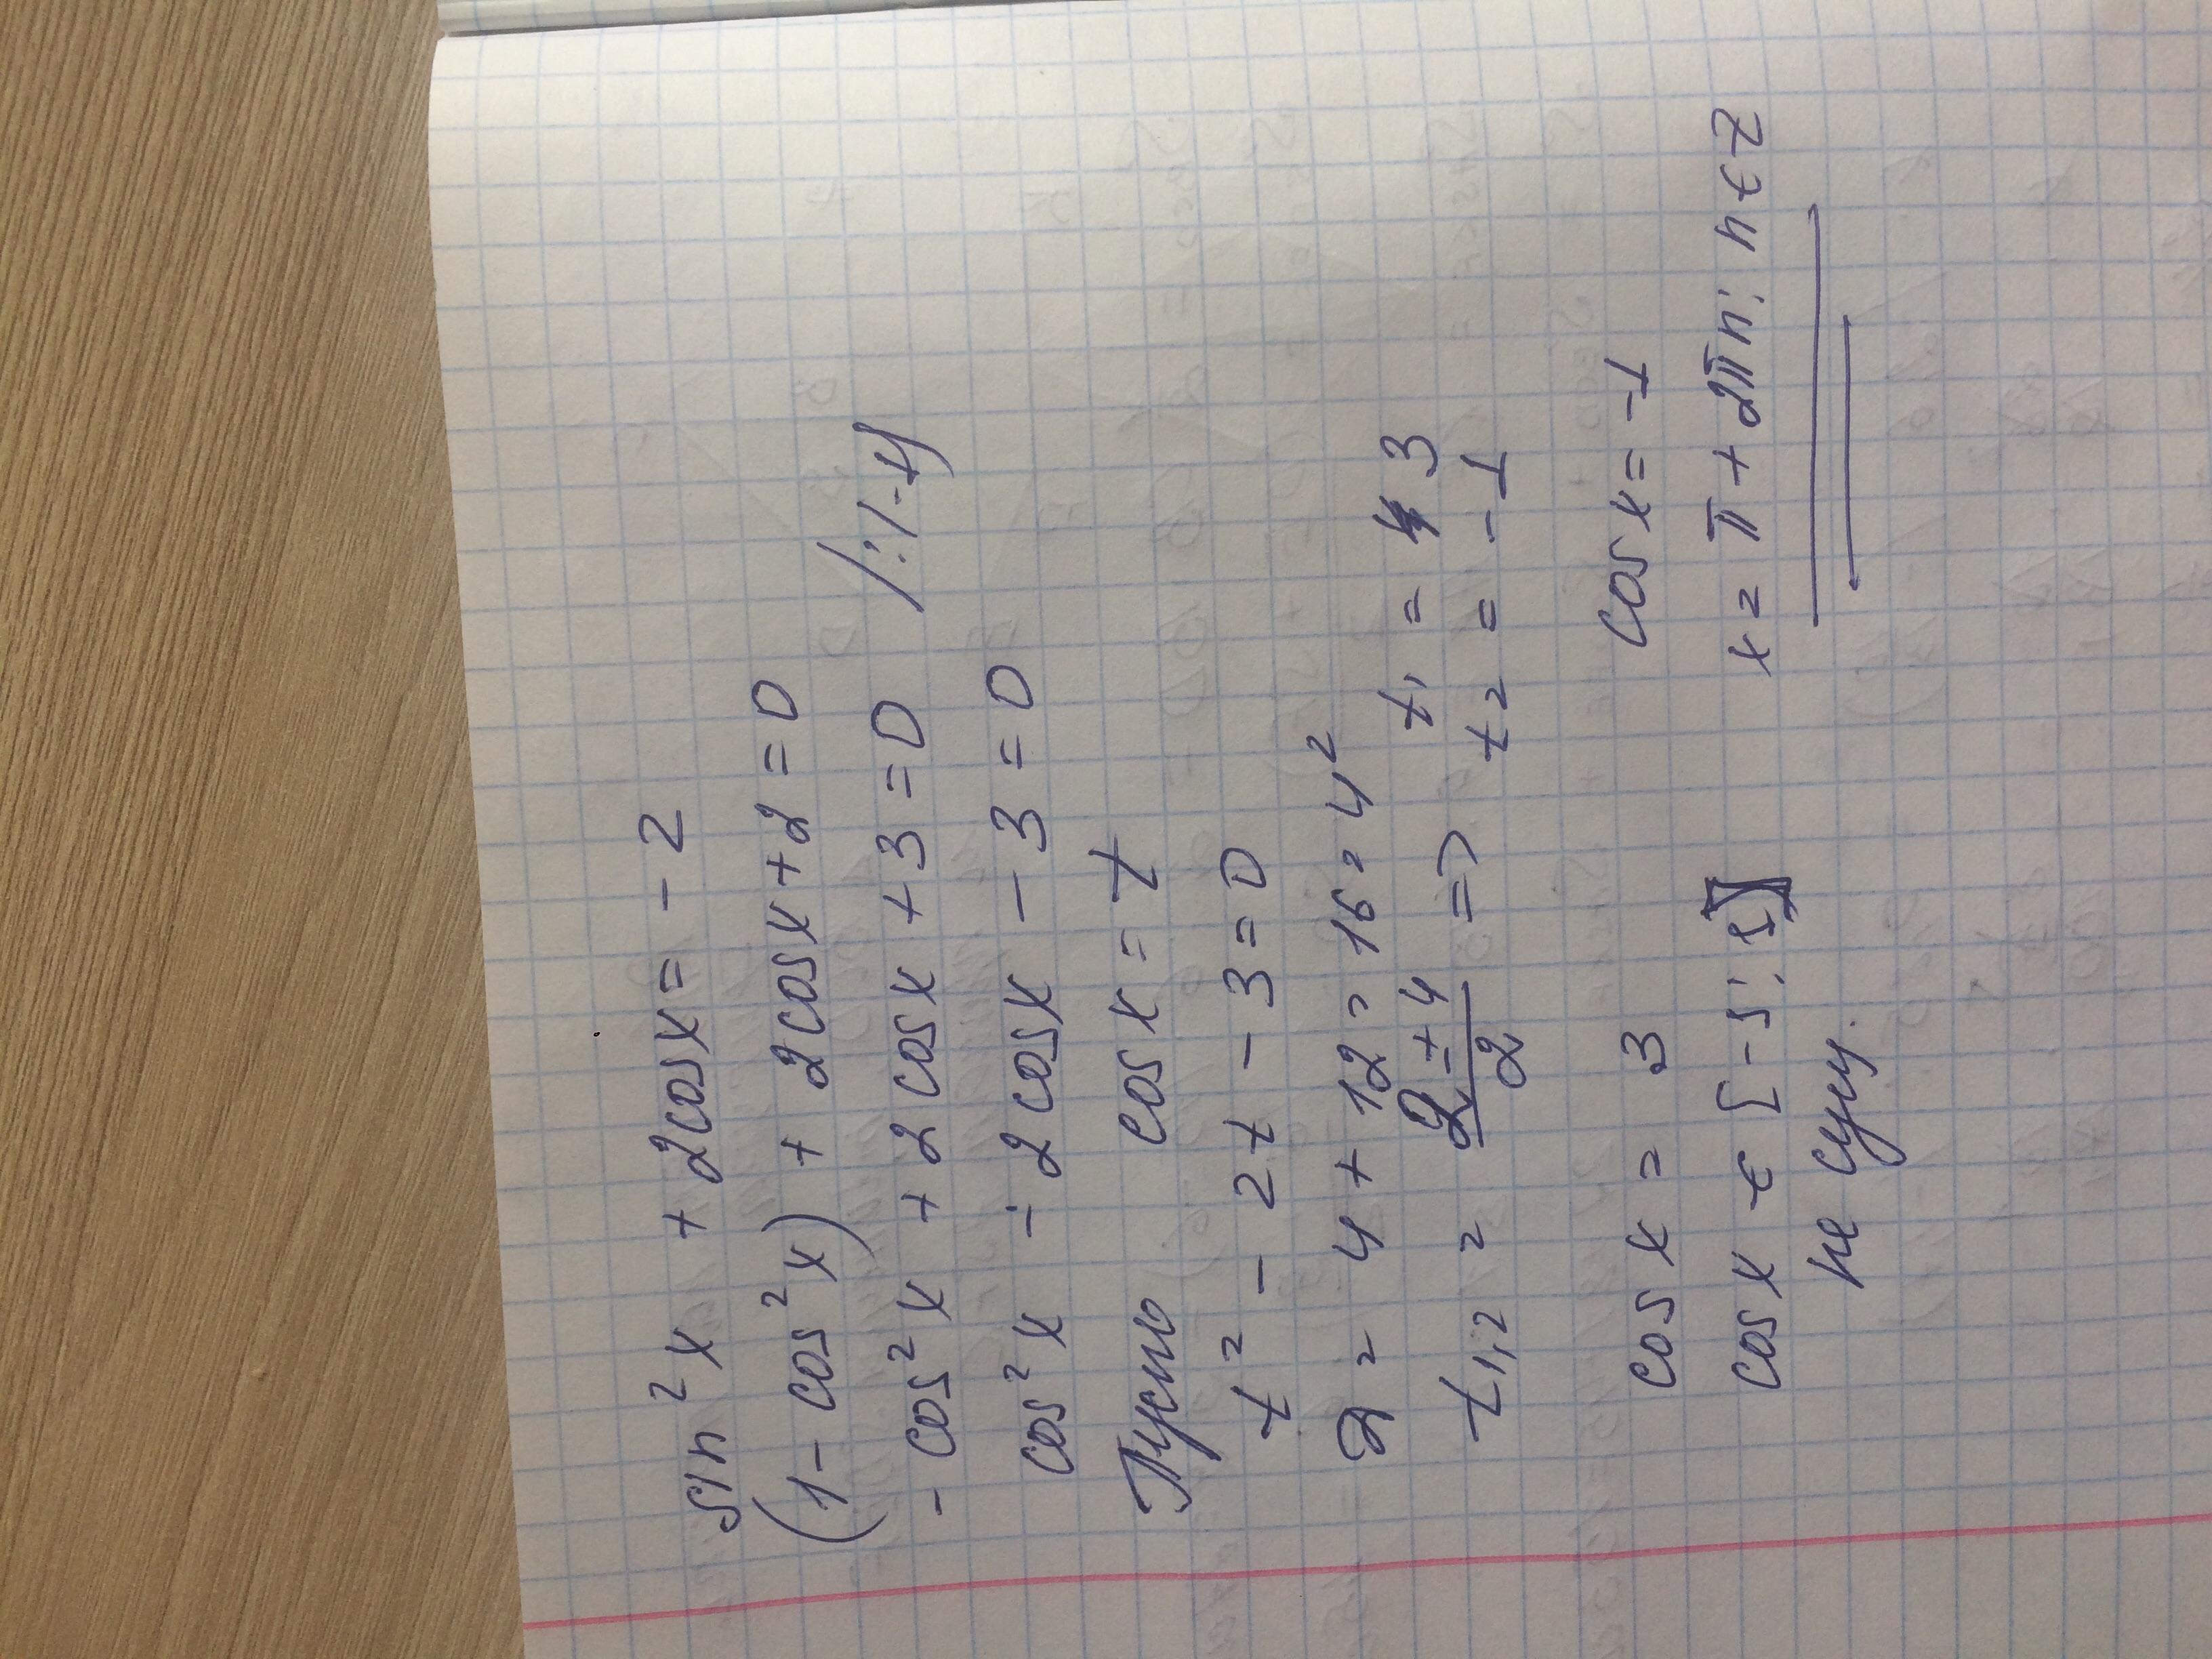 sin²x + 2cosx = -2
(1 - cos²x) + 2cosx + 2 = 0
- cos²x + 2cosx + 3 = 0 /:(-1)
cos²x - 2cosx - 3 = 0
Пусть cosx = t
t² - 2t - 3 = 0
D = 4 + 12 = 16 = 4²
t1,2 = (2 ± 4)/2 => t1 = 3
t2 = -1
cosx = 3 cosx = -1
cosx ∈ [-1; 1] x = π + 2πn; n ∈ Z
не сущ.